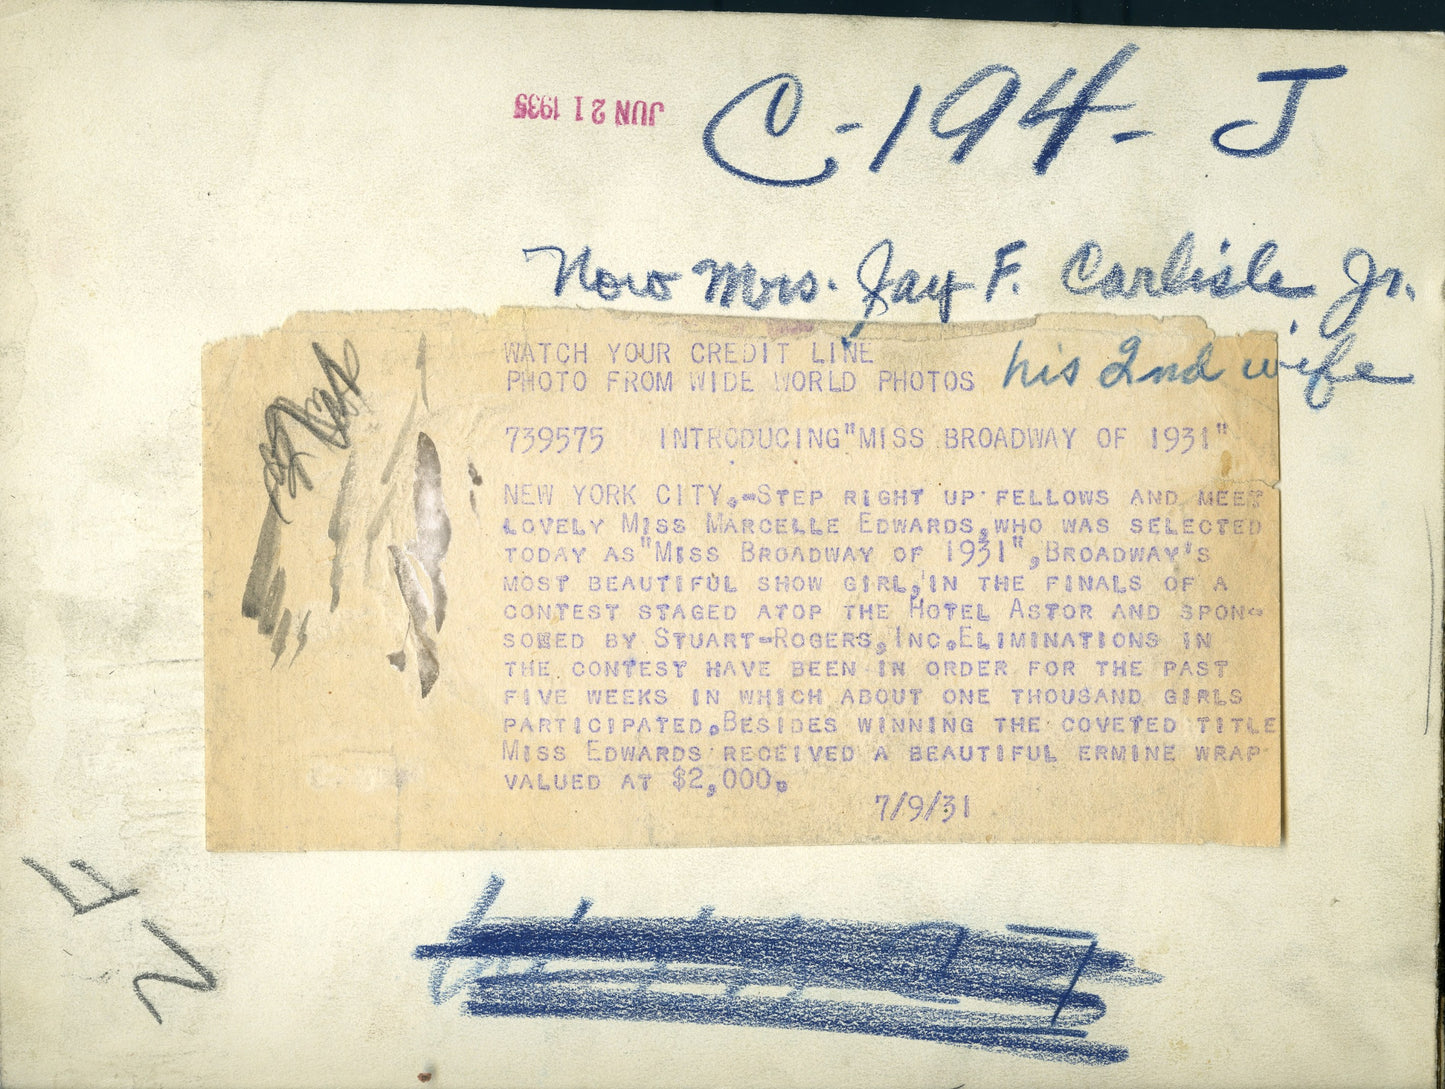 JUN 21 1935
C-194-J
Now Mrs. Jay F. Carlisle Jr.
his 2nd wife
WATCH YOUR CREDIT LINE
PHOTO FROM WIDE WORLD PHOTOS
739575 INTRODUCING "MISS BROADWAY OF 1931"
NEW YORK CITY.-STEP RIGHT UP FELLOWS AND MEET
LOVELY MISS MARCELLE EDWARDS, WHO WAS SELECTED
TODAY AS "MISS BROADWAY OF 1931", BROADWAY'S
MOST BEAUTIFUL SHOW GIRL, IN THE FINALS OF A
CONTEST STAGED ATOP THE HOTEL ASTOR AND SPON-
SORED BY STUART-ROGERS, INC. ELIMINATIONS IN
THE CONTEST HAVE BEEN IN ORDER FOR THE PAST
FIVE WEEKS IN WHICH ABOUT ONE THOUSAND GIRLS
PARTICIPATED. BESIDES WINNING THE COVETED TITLE
MISS EDWARDS RECEIVED A BEAUTIFUL ERMINE WRAP
VALUED AT $2,000.
7/9/31
NF